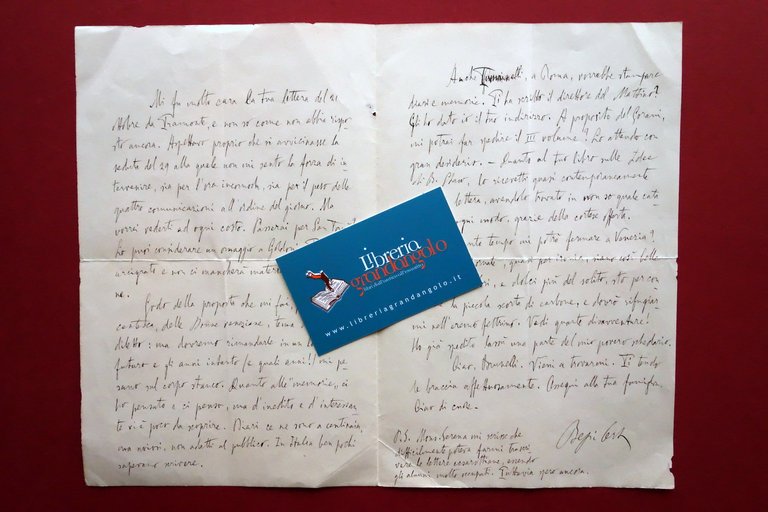 Mi fu molto cara la tua lettera del 21
ottobre da Tramonte, e non so come non abbia rispo-
sto ancora. Aspettavo proprio che si avvicinasse la
seduta del 29 alla quale non mi sento la forza di in-
tervenire, sia per l'ora incomoda, sia per il peso delle
quattro comunicazioni all'ordine del giorno. Ma
vorrei vederti ad ogni costo. Passerai per San
Lo puoi considerare un omaggio a Goldoni
e non ci mancherà
no.
Godo della proposta che mi fai,
delle veneziane, tema
diletto: ma dovremo rimandarla in un
futuro e gli anni intanto (e quali anni!) mi pe-
sano sul corpo stanco. Quanto alle "memorie, ci
ho pensato e ci penso, ma d'inedito e d'interessan-
te vi è poco da scoprire. Diari ce ne sono a centinaia,
ma noiosi, non adatti al pubblico. In Italia ben pochi
sapevano scrivere.
Anche , a Roma, vorrebbe stampare
diari e memorie. Ti ha scritto il direttore del Mattino?
Gli ho dato io il tuo indirizzo. A proposito del Gorani,
mi potrai far spedire il III volume? Lo attendo con
gran desiderio. – Quanto al tuo libro sulle Idee
lo ricevetti quasi contemporaneamente
lettera, avendolo trovato in non so quale cata-
ogni modo, grazie della cortese offerta.
tempo mi potrò fermare a Venezia?
così belle
e dolci più del solito, sto per con-
piccola scorta di carbone, e dovrò rifugiar-
mi nell'eremo feltrino. Vedi quante disavventure!
Ho già spedito lassù una parte del mio povero schedario.
Ciao, . Vieni a trovarmi. Ti tendo
le braccia affettuosamente. Ossequi alla tua famiglia.
Ciao di cuore.
Bepi
P.S. Mons. mi scrisse che
difficilmente poteva farmi trascri-
vere le lettere , essendo
gli alunni molto occupati. Tuttavia spero ancora.
Libreria
grandangolo
libri dall'antico all'usato
www.libreriagrandangolo.it